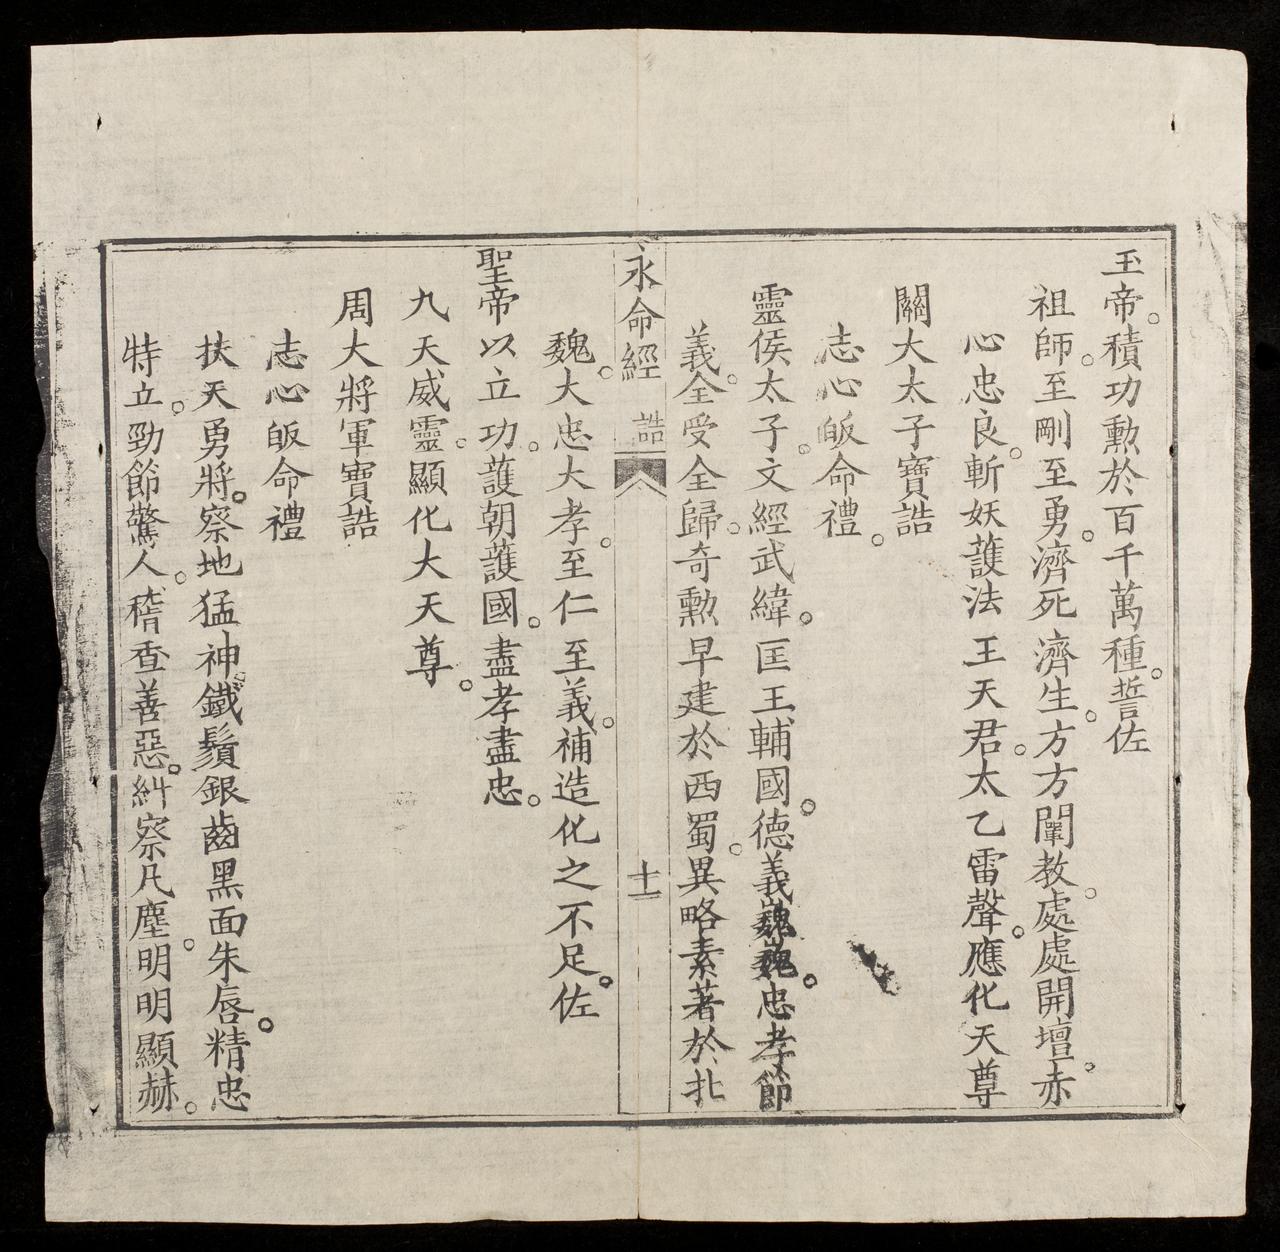 玉帝。積功勳於百千萬種。誓佐
祖師。至剛至勇。濟死濟生。方方闡教。處處開壇。赤
心忠良。斬妖護法王天君。太乙雷聲。應化天尊
關大太子寶誥
志心皈命禮。
靈侯太子。文經武緯。匡王輔國。德義巍巍。忠孝節
義。全受全歸。奇勳早建於西蜀。異略素著於北
永命經 誥 十一
魏。大忠大孝。至仁至義。補造化之不足。佐
聖帝以立功。護朝護國。盡孝盡忠。
九天威靈。顯化大天尊。
周大將軍寶誥
志心皈命禮
扶天勇將。察地猛神。鐵鬚銀齒。黑面朱唇。精忠
特立。勁節驚人。稽查善惡。糾察凡塵。明明顯赫。